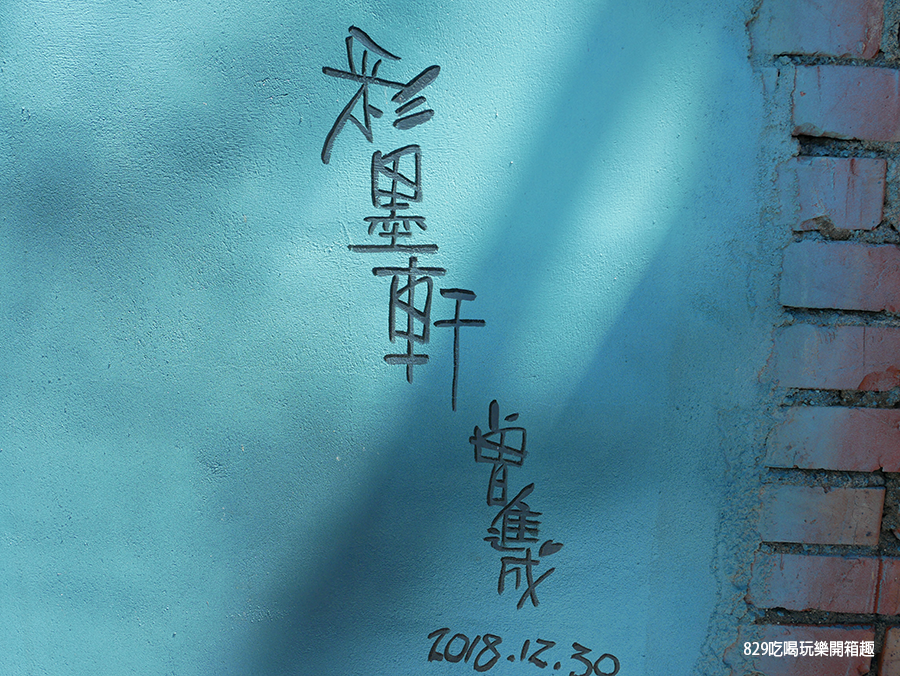 彩墨軒
曾進成
2018.12.30
829吃喝玩樂開箱趣